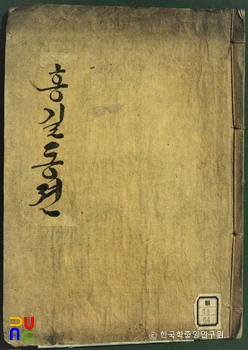 홍길동젼
© 한국학중앙연구원